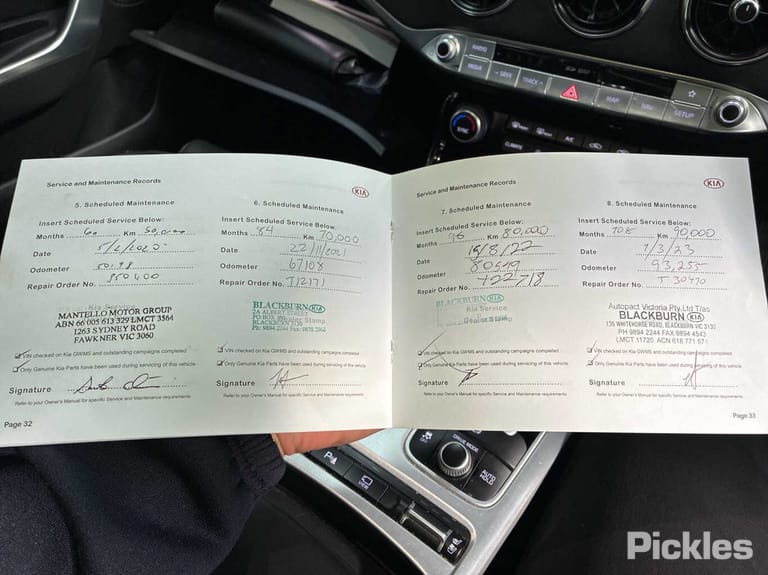 RADIO
MEDIA
SEEK
TRACK
MAP
NAV
SETUP
SYNC
A/C
CLIMATE
Service and Maintenance Records
KIA
5. Scheduled Maintenance
Insert Scheduled Service Below:
Months 60 Km 50,000
Date 5/2/2020
Odometer
Repair Order No. 350400
Kia Service
MANTELLO MOTOR GROUP
ABN 66 005 613 329 LMCT 3564
1263 SYDNEY ROAD
FAWKNER VIC 3060
VIN checked on Kia GWMS and outstanding campaigns completed
Only Genuine Kia Parts have been used during servicing of this vehicle
Signature
Refer to your Owner's Manual for specific Service and Maintenance requirements.
Page 32
6. Scheduled Maintenance
Insert Scheduled Service Below:
Months 84 Km 70,000
Date 22/11/2021
Odometer 67108
Repair Order No. T12171
BLACKBURN KIA
2A ALBERT STREET
PO BOX
BLACKBURN 3130
Ph: 9894 2244 Fax: 9878 2362
VIN checked on Kia GWMS and outstanding campaigns completed
Only Genuine Kia Parts have been used during servicing of this vehicle
Signature
Refer to your Owner's Manual for specific Service and Maintenance requirements.
Service and Maintenance Records
KIA
7. Scheduled Maintenance
Insert Scheduled Service Below:
Months 96 Km 80,000
Date 15/8/22
Odometer
Repair Order No.
BLACKBURN KIA
Dealer Stamp
VIN checked on Kia GWMS and outstanding campaigns completed
Only Genuine Kia Parts have been used during servicing of this vehicle
Signature
Refer to your Owner's Manual for specific Service and Maintenance requirements.
8. Scheduled Maintenance
Insert Scheduled Service Below:
Months 108 Km 90,000
Date 7/3/23
Odometer 93,255
Repair Order No. T30470
Autopact Victoria Pty.Ltd T/as
BLACKBURN KIA
136 WHITEHORSE ROAD, BLACKBURN VIC 3130
PH 9894 2244 FAX 9894 4543
LMCT 11720 ACN 616 771 571
VIN checked on Kia GWMS and outstanding campaigns completed
Only Genuine Kia Parts have been used during servicing of this vehicle
Signature
Refer to your Owner's Manual for specific Service and Maintenance requirements.
Page 33
DRIVE MODE
AUTO HOLD
VIEW
Pickles